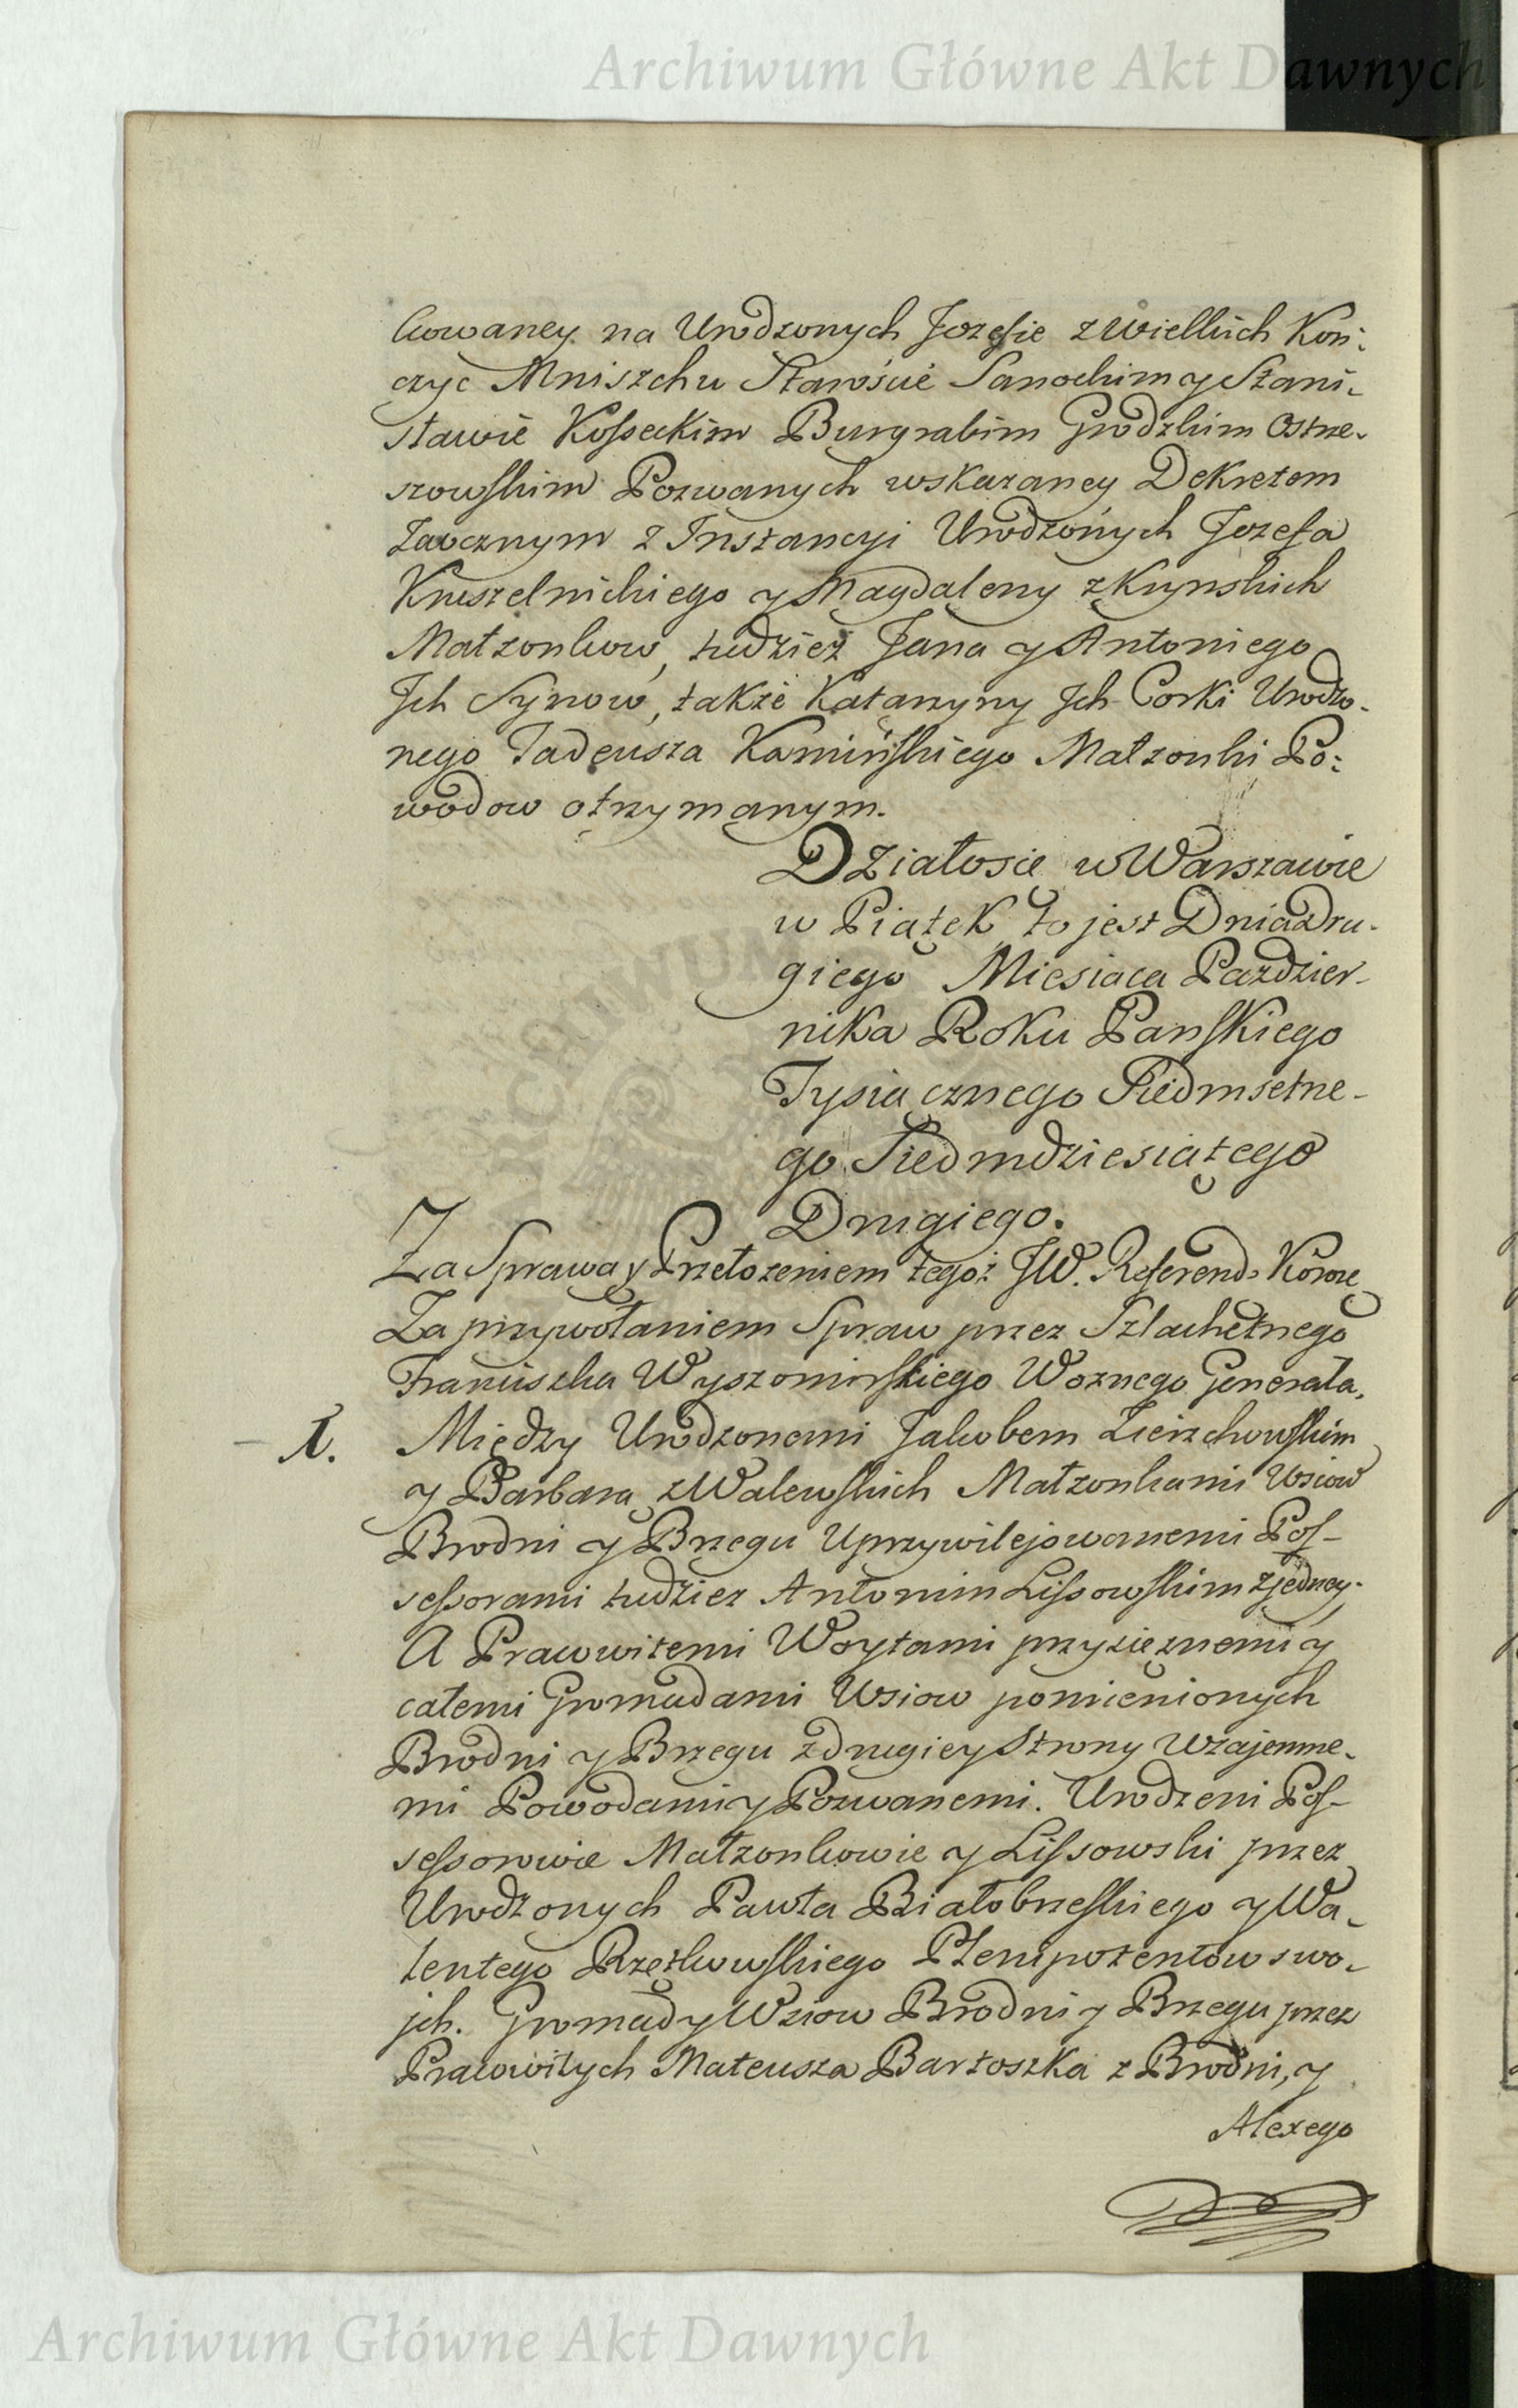 Archiwum Główne Akt Dawnych
kowaney na Urodzonych Jozefie z Wielkich Koń-
czyc Mniszchu Starościę Sanockim y Stani-
sławie Kosseckim Burgrabim Grodzkim Ostrze-
szowskim Pozwanych wskazaney Dekretem
Zaocznym z Instancyi Urodzonych Jozefa
Kruszelnickiego y Magdaleny z Kynskich
Małzonkow, tudzież Jana y Antoniego
Jch Synow, także Katarzyny Jch Corki Urodzo-
nego Tadeusza Kamińskiego Małzonki Po-
wodow otrzymanym.
Działosię w Warszawie
w Piątek to jest Dnia Dru-
giego Miesiąca Pazdzier-
nika Roku Panskiego
Tysiącznego Siedmsetne-
go Siedmdziesiątego
Drugiego.
Za Sprawą y Przełożeniem tegoż JW. Referend. Koroẽ
Za przywołaniem Spraw przez Szlachetnego
Franciszka Wyszomirskiego Woznego Generała.
1. Między Urodzonemi Jakubem Zierzchowskim
y Barbarą z Walewskich Małzonkami Wsiow
Brodni y Brzegu Uprzywilejowanemi Pos-
sessorami tudziez Antonim Lissowskim z jedney.
A Prawowitemi Woytami przysięznemi y
całemi Gromadami Wsiow pomienionych
Brodni y Brzegu z drugiey Strony wzajemne-
mi Powodami y Pozwanemi. Urodzeni Pos-
sessorowie Małzonkowie y Lissowski przez
Urodzonych Pawła Białobrzeskiego y Wa-
lentego Rzętkowskiego Plenipotentow swo-
jch. Gromady Wsiow Brodni y Brzegu przez
Prawowitych Mateusza Bartoszka z Brodni, y
Alexego
Archiwum Główne Akt Dawnych